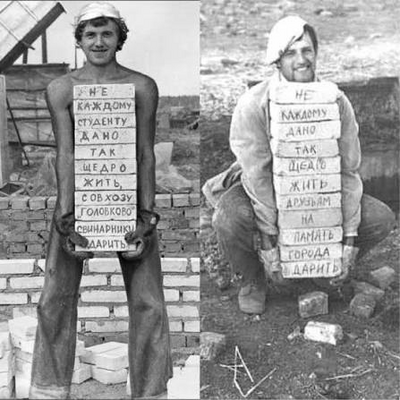 НЕ
КАЖДОМУ
СТУДЕНТУ
ДАНО
ТАК
ЩЕДРО
ЖИТЬ,
СОВХОЗУ
ГОЛОВКОВО
СВИНАРНИКИ
ДАРИТЬ
НЕ
КАЖДОМУ
ДАНО
ТАК
ЩЕДРО
ЖИТЬ
ДРУЗЬЯМ
НА
ПАМЯТЬ
ГОРОДА
ДАРИТЬ